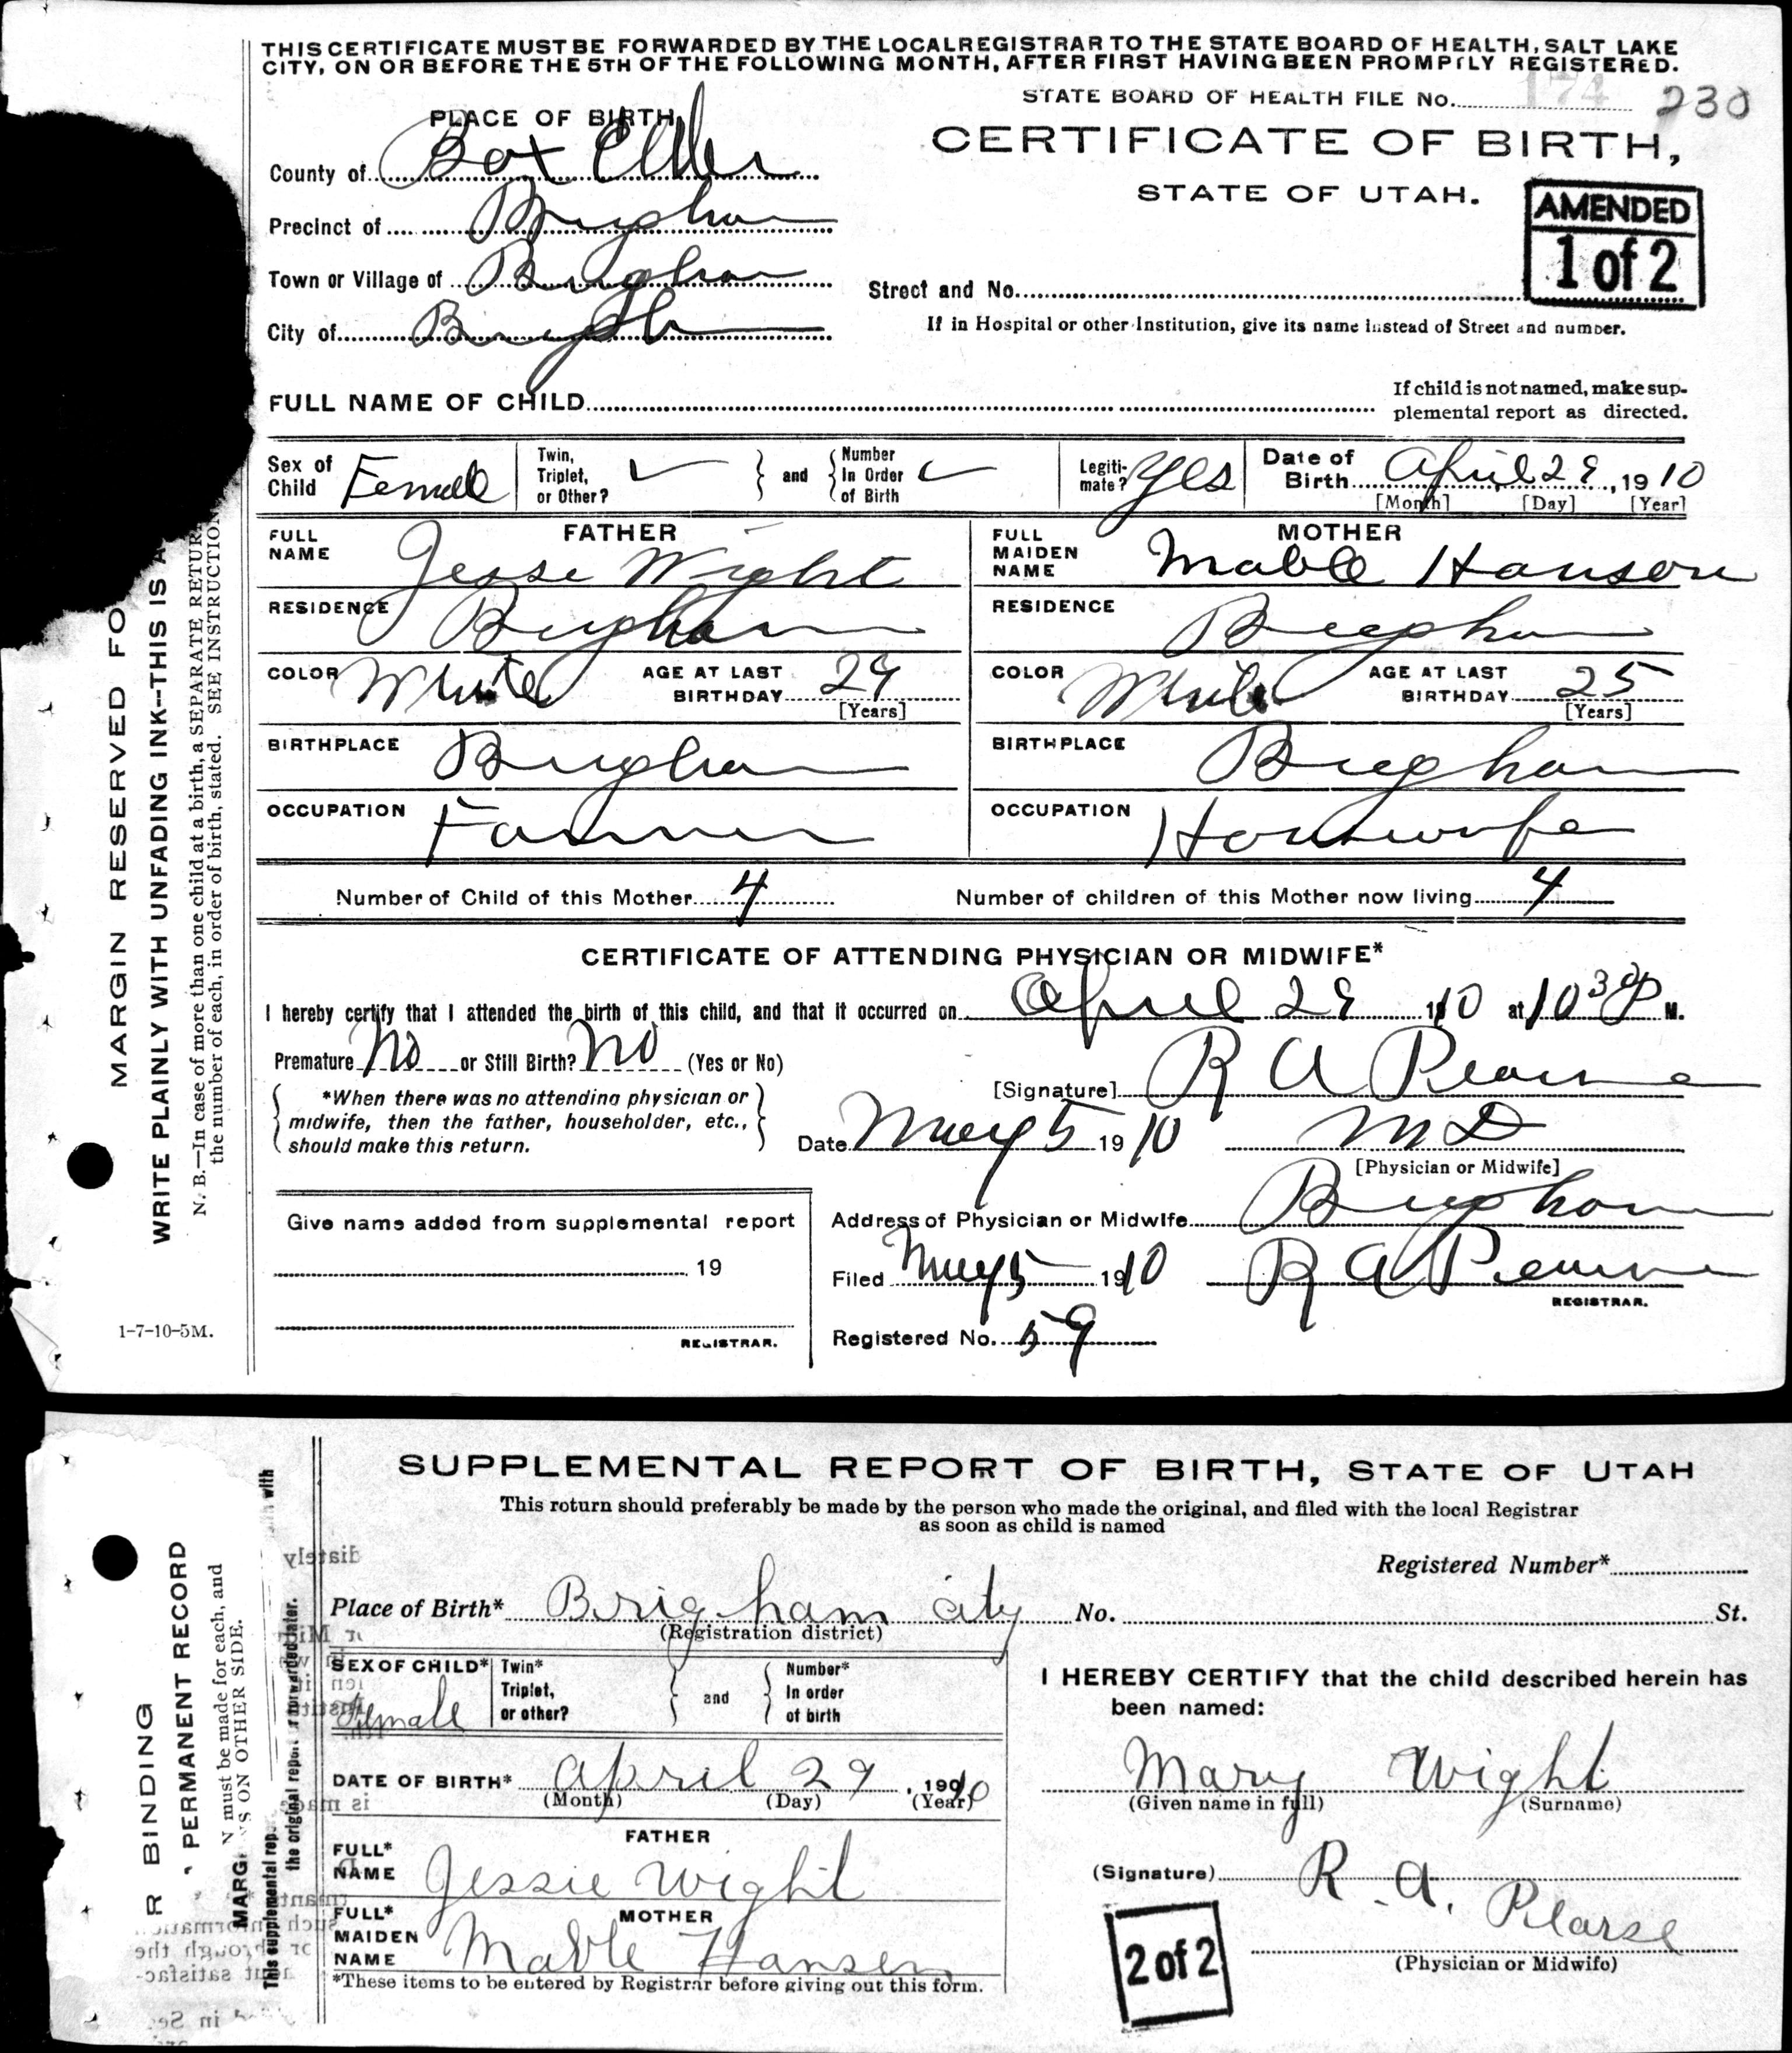 THIS CERTIFICATE MUST BE FORWARDED BY THE LOCAL REGISTRAR TO THE STATE BOARD OF HEALTH, SALT LAKE
CITY, ON OR BEFORE THE 5TH OF THE FOLLOWING MONTH, AFTER FIRST HAVING BEEN PROMPTLY REGISTERED.
STATE BOARD OF HEALTH FILE No. 174 230
PLACE OF BIRTH
CERTIFICATE OF BIRTH,
STATE OF UTAH.
AMENDED
1 of 2
County of Box Elder
Precinct of Brigham
Town or Village of Brigham
City of Brigham
Street and No.
If in Hospital or other Institution, give its name instead of Street and number.
FULL NAME OF CHILD
If child is not named, make sup-
plemental report as directed.
Sex of Child Female
Twin, Triplet, or Other? and Number In Order of Birth
Legiti-mate? Yes
Date of Birth April 29, 1910
[Month] [Day] [Year]
FATHER
FULL NAME Jesse Wight
RESIDENCE Brigham
COLOR White AGE AT LAST BIRTHDAY 29
[Years]
BIRTHPLACE Brigham
OCCUPATION Farmer
MOTHER
FULL MAIDEN NAME Mable Hansen
RESIDENCE Brigham
COLOR White AGE AT LAST BIRTHDAY 25
[Years]
BIRTHPLACE Brigham
OCCUPATION Housewife
Number of Child of this Mother 4 Number of children of this Mother now living 4
CERTIFICATE OF ATTENDING PHYSICIAN OR MIDWIFE*
I hereby certify that I attended the birth of this child, and that it occurred on April 29 1910 at 10 30 P M.
Premature No or Still Birth? No (Yes or No)
*When there was no attending physician or
midwife, then the father, householder, etc.,
should make this return.
[Signature] R A Pearse
Date May 5 1910 M D
[Physician or Midwife]
Give name added from supplemental report
19
REGISTRAR.
Address of Physician or Midwife Brigham
Filed May 5 1910 R A Pearse
REGISTRAR.
Registered No. 59
MARGIN RESERVED FO
WRITE PLAINLY WITH UNFADING INK--THIS IS A
N. B.—In case of more than one child at a birth, a SEPARATE RETUR
the number of each, in order of birth, stated. SEE INSTRUCTION
1-7-10-5M.
SUPPLEMENTAL REPORT OF BIRTH, STATE OF UTAH
This return should preferably be made by the person who made the original, and filed with the local Registrar
as soon as child is named
Registered Number*
Place of Birth* Brigham City No. St.
(Registration district)
SEX OF CHILD* Female
Twin* Triplet, or other? and Number* In order of birth
DATE OF BIRTH* April 29, 1910
(Month) (Day) (Year)
FATHER
FULL* NAME Jessie Wight
MOTHER
FULL* MAIDEN NAME Mable Hansen
*These items to be entered by Registrar before giving out this form.
I HEREBY CERTIFY that the child described herein has
been named:
Mary Wight
(Given name in full) (Surname)
(Signature) R. A. Pearse
(Physician or Midwife)
2 of 2
R BINDING
PERMANENT RECORD
N must be made for each, and
S ON OTHER SIDE.
MARG
This supplemental rep
with
the original report
forwarded later.